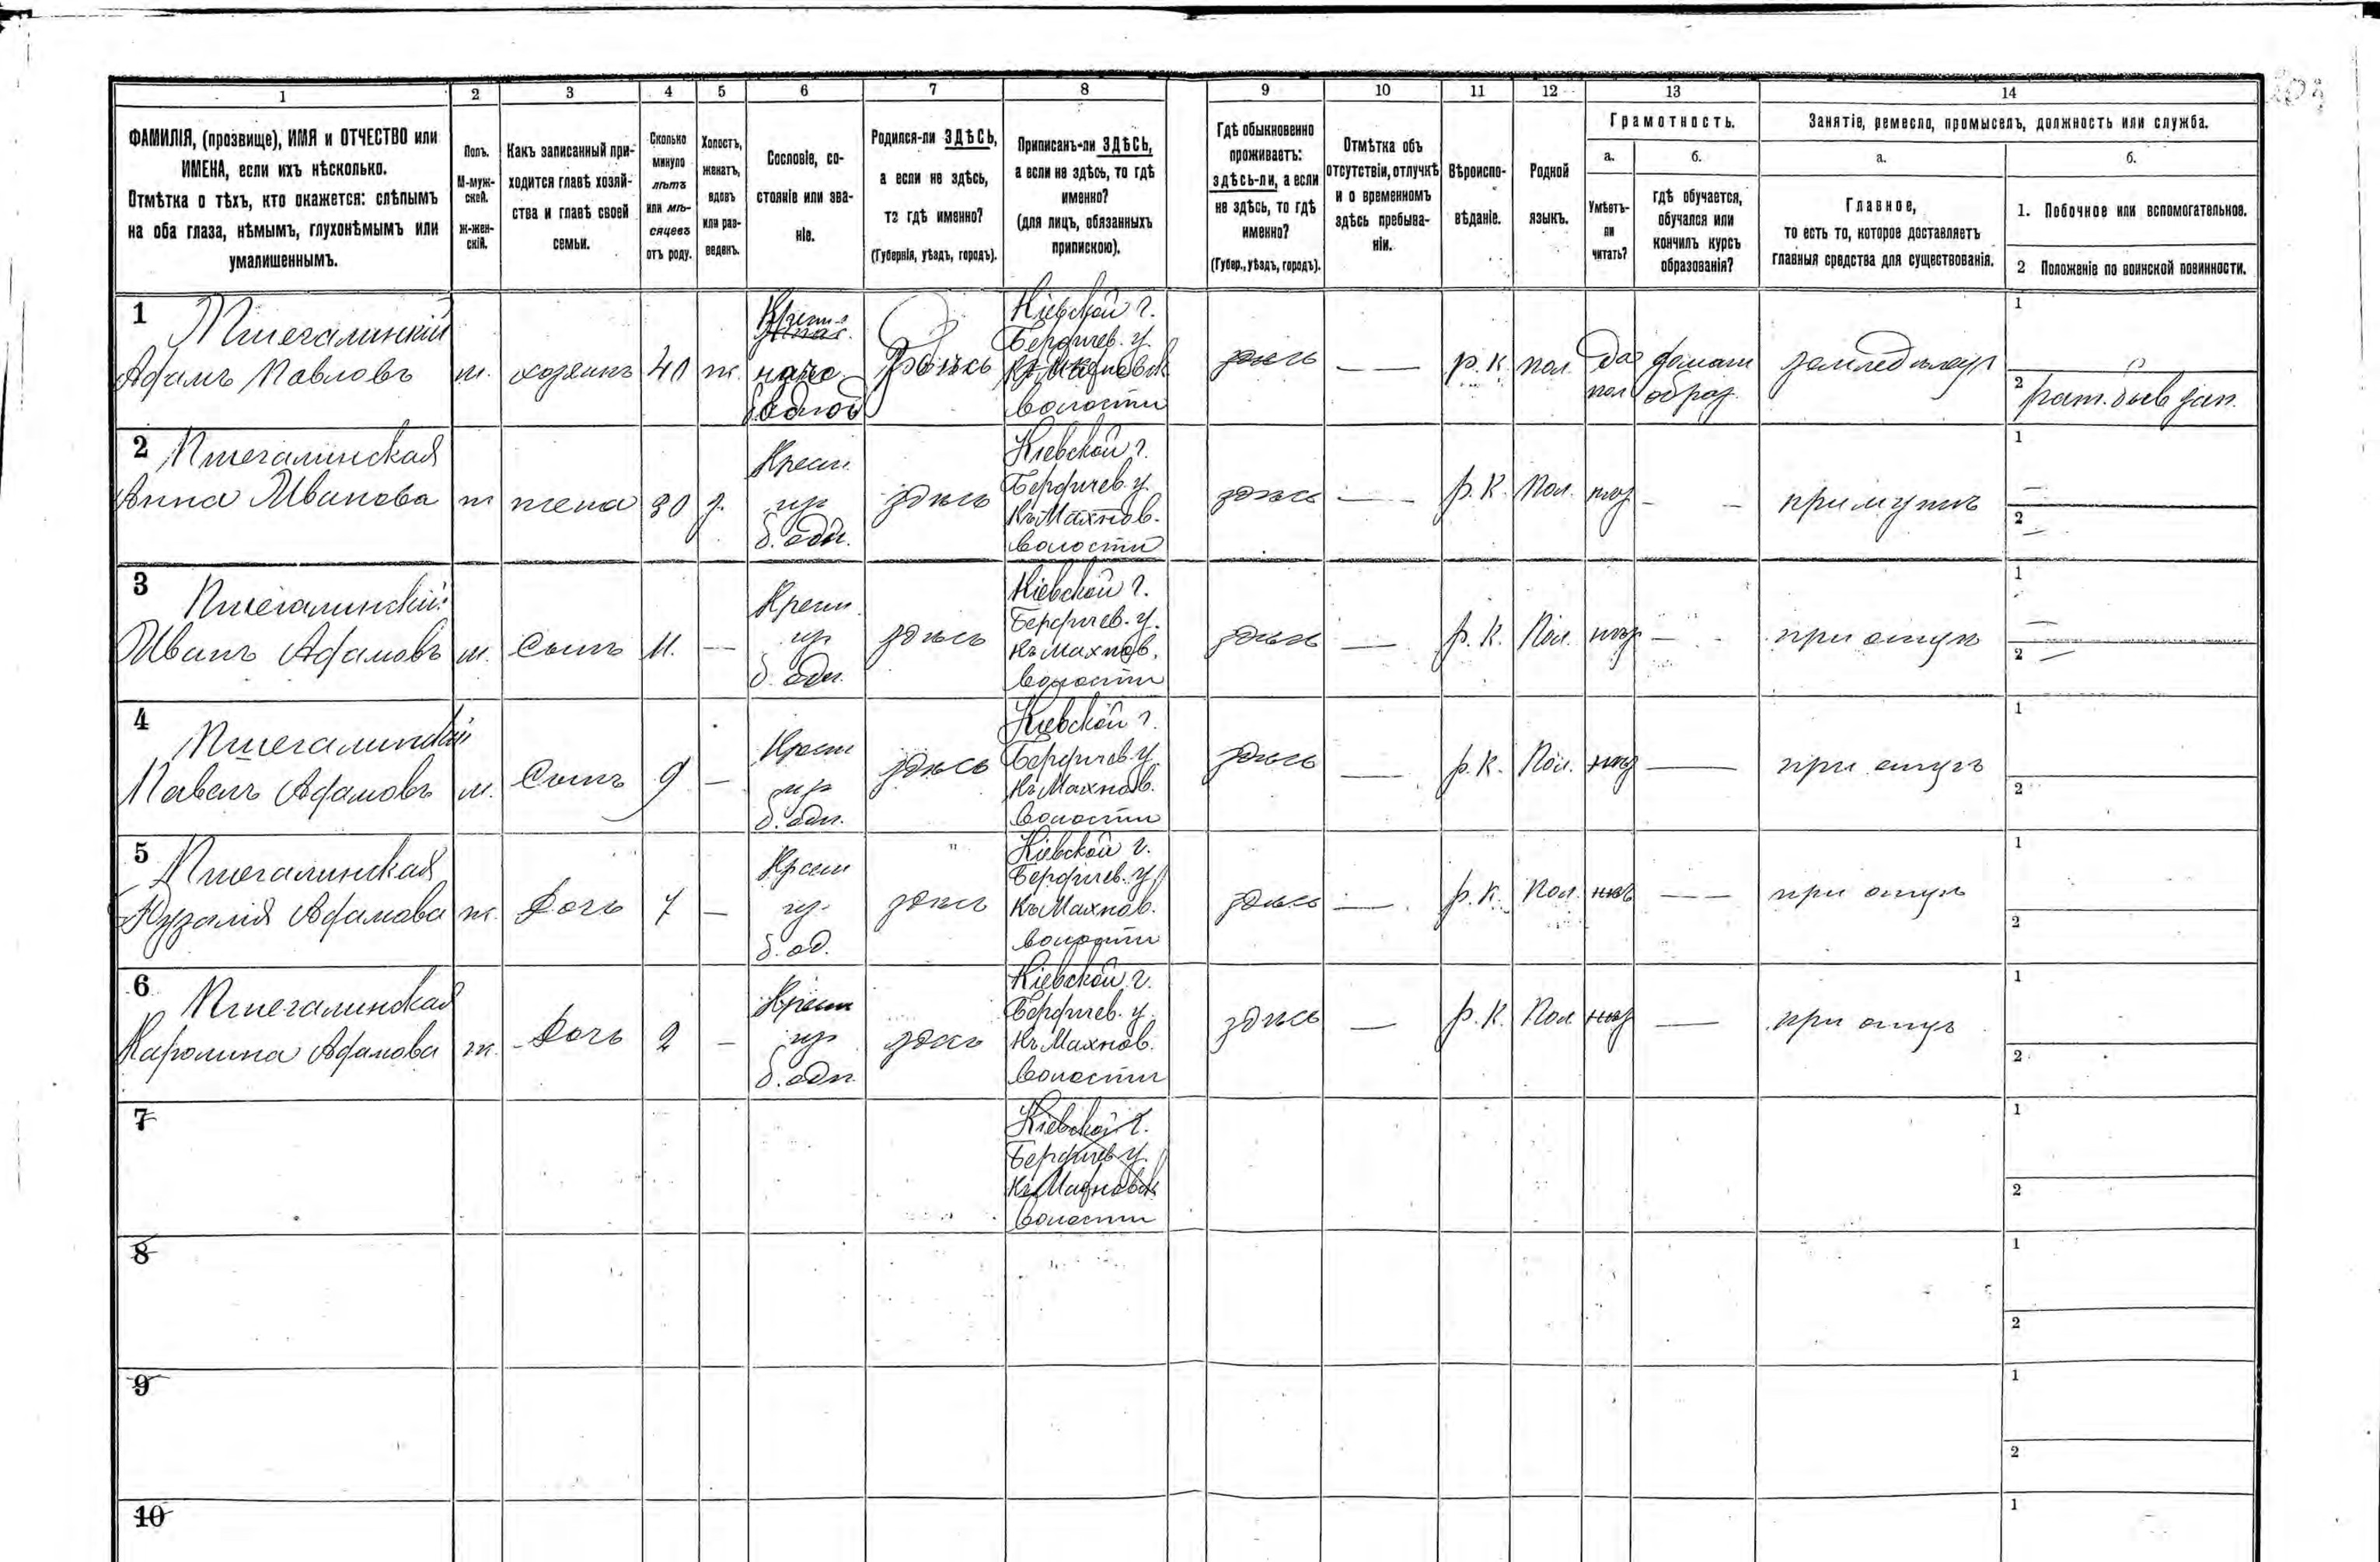 1 2 3 4 5 6 7 8 9 10 11 12 13 14
ФАМИЛІЯ, (прозвище), ИМЯ и ОТЧЕСТВО или
ИМЕНА, если ихъ нѣсколько.
Отмѣтка о тѣхъ, кто окажется: слѣпымъ
на оба глаза, нѣмымъ, глухонѣмымъ или
умалишеннымъ.
Полъ.
М-муж-
ской.
Ж-жен-
скій.
Какъ записанный при-
ходится главѣ хозяй-
ства и главѣ своей
семьи.
Сколько
минуло
лѣтъ
или мѣ-
сяцевъ
отъ роду.
Холостъ,
женатъ,
вдовъ
или раз-
веденъ.
Сословіе, со-
стояніе или зва-
ніе.
Родился-ли ЗДѢСЬ,
а если не здѣсь,
то гдѣ именно?
(Губернія, уѣздъ, городъ).
Приписанъ-ли ЗДѢСЬ,
а если не здѣсь, то гдѣ
именно?
(для лицъ, обязанныхъ
припискою).
Гдѣ обыкновенно
проживаетъ:
здѣсь-ли, а если
не здѣсь, то гдѣ
именно?
(Губер., уѣздъ, городъ).
Отмѣтка объ
отсутствіи, отлучкѣ
и о временномъ
здѣсь пребыва-
ніи.
Вѣроиспо-
вѣданіе.
Родной
языкъ.
Грамотность.
а.
Умѣетъ-
ли
читать?
б.
гдѣ обучается,
обучался или
кончилъ курсъ
образованія?
Занятіе, ремесло, промыселъ, должность или служба.
а.
Главное,
то есть то, которое доставляетъ
главныя средства для существованія.
б.
1. Побочное или вспомогательное.
2 Положеніе по воинской повинности.
1
Пшегалинскій
Адамъ Павловъ
м. хозяинъ 40 ж.
Здѣсь
Кіевской г.
Бердичев. у.
къ Махновск
волости
здѣсь — р. К. пол. да
пол
домаш
образ.
земледѣлец
1
2
рат. быв зап.
2
Пшегалинская
Анна Иванова
ж жена 30 з.
Крест.
б. одн.
здѣсь
Кіевской г.
Бердичев. у.
Къ Махнов.
волости
здѣсь — р. К. Пол. — при мужѣ
1 —
2 —
3
Пшегалинскій
Иванъ Адамовъ
м. Сынъ 11. —
Крест.
б. одн.
здѣсь
Кіевской г.
Бердичев. у.
Къ Махнов.
волости
здѣсь — р. К. Пол. — при отцѣ
1 —
2 —
4
Пшегалинскій
Павелъ Адамовъ
м. Сынъ 9 —
Крест
б. одн.
здѣсь
Кіевской г.
Бердичев. у.
Къ Махнов.
волости
здѣсь — р. К. Пол. — при отцѣ
1
2
5
Пшегалинская
Розалія Адамова
ж. Дочь 7 —
Крест
б. од.
здѣсь
Кіевской г.
Бердичев. у.
Къ Махнов.
волости
здѣсь — р. К. Пол. — при отцѣ
1
2
6
Пшегалинская
Каролина Адамова
ж. Дочь 2 —
Крест
б. одн
здѣсь
Кіевской г.
Бердичев. у.
Къ Махнов.
волости
здѣсь — р. К. Пол — при отцѣ
1
2
7
Кіевской г.
Бердичев у.
Къ Махновск
волости
1
2
8
1
2
9
1
2
10
1